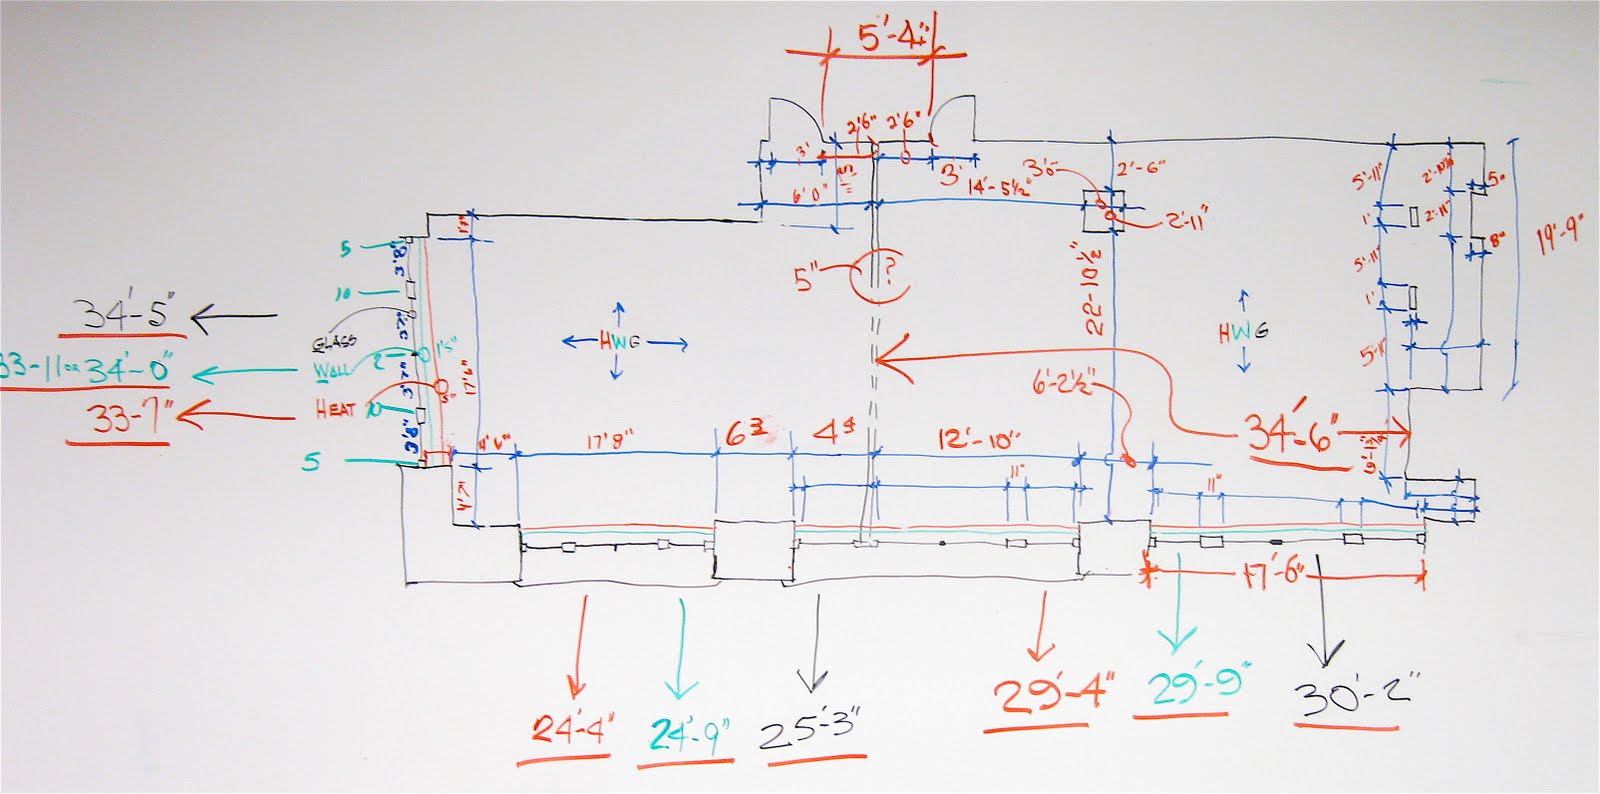 5'-4"
2'6" 2'6"
3'
3'
6'0"
14'-5½"
3'6"
2'-6"
2'-11"
5'-11"
5"
1'
2'-11"
8"
19'-9"
5'-11"
1'
5'-11"
22'-10½"
5" ?
5
3'8"
10
34'-5"
GLASS
33-11 OR 34'-0"
WALL 2
1'5"
3'7"
33-7"
HEAT 10
17'6"
3'8"
5
HWG
HWG
6'-2½"
34'-6"
4'6"
17'8"
6³
4⁴
12'-10"
4'7"
11"
11"
17'-6"
24'-4"
24'-9"
25'-3"
29'-4"
29'-9"
30'-2"